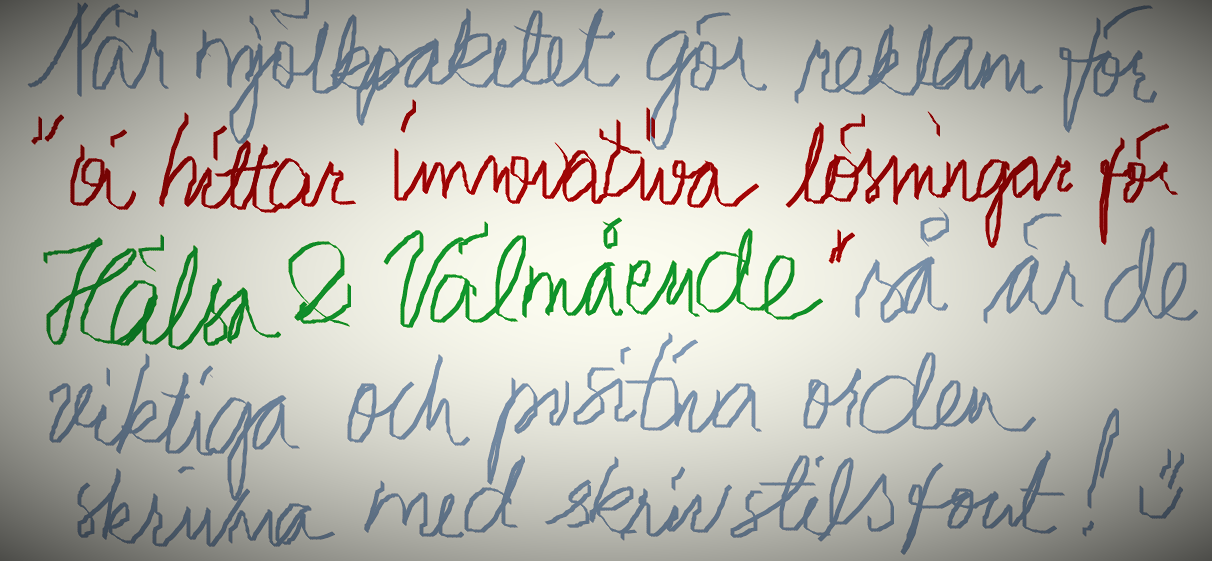 När mjölkpaketet gör reklam för
"vi hittar innovativa lösningar för
Hälsa & Välmående" så är de
viktiga och positiva orden
skrivna med skrivstilsfont! ü